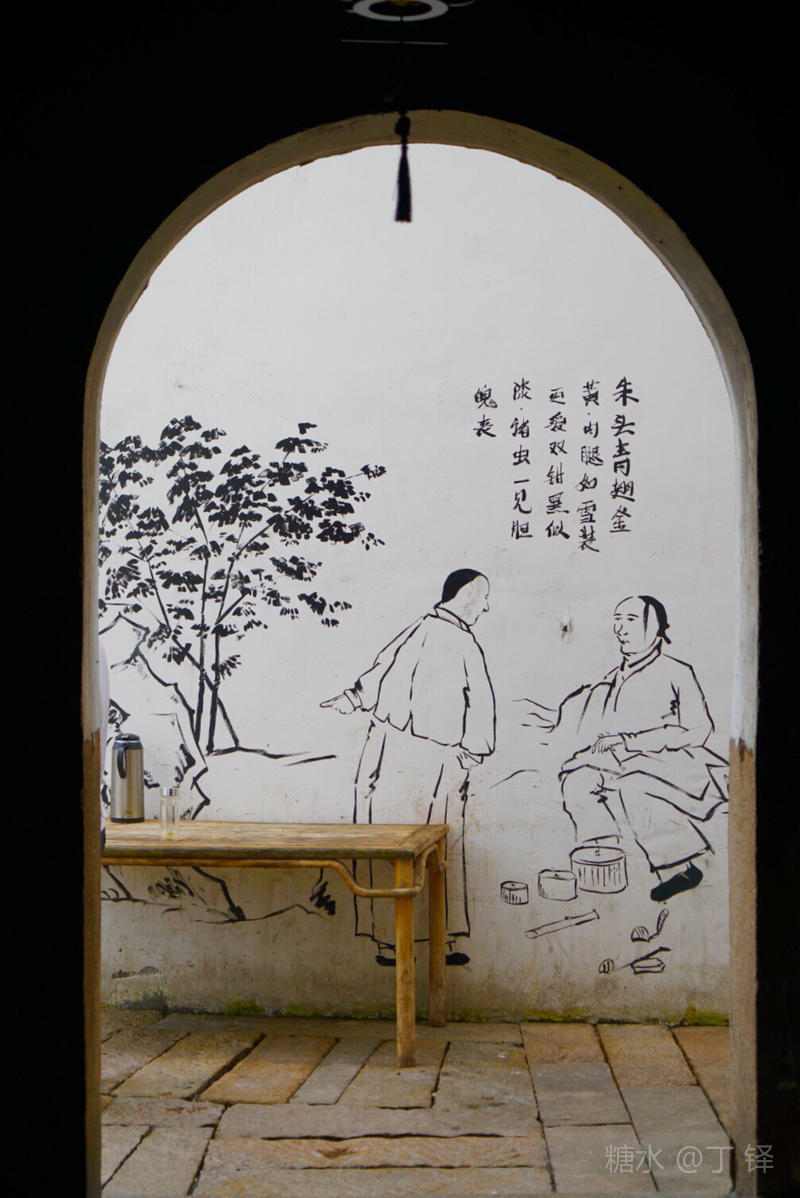 朱头青翅金
黄·肉腿如雪裝
更爱双钳黑似
漆·诸虫一见胆
魄丧
糖水 @丁 铎